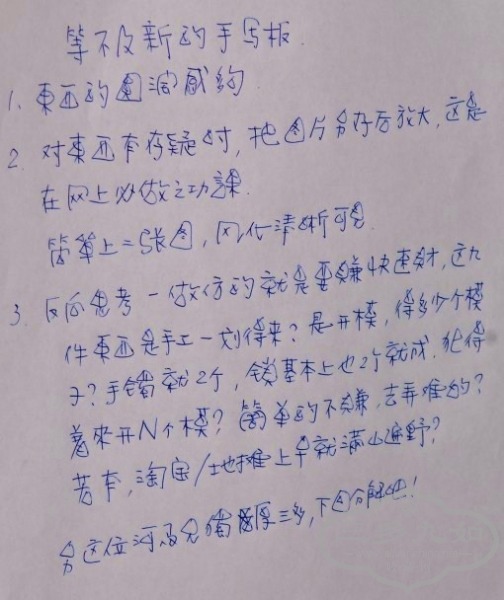 等不及新的手写板.
1. 東西的圓潤感的
2. 对東西有存疑时, 把图片另存后放大, 这是
在网上必做之功課.
简单上二张图, 风化清晰可见
3. 反向思考 一做仿的就是要赚快速財, 这九
件東西是手工一刻得来? 是开模, 得多少个模
子? 手镯就2个, 锁基本上也2个就成. 犯得
着來开N个模? 简单的不赚, 去弄难的?
若有, 淘宝/地摊上早就满山遍野?
另这位河马兄 三多, 下图分解吧!